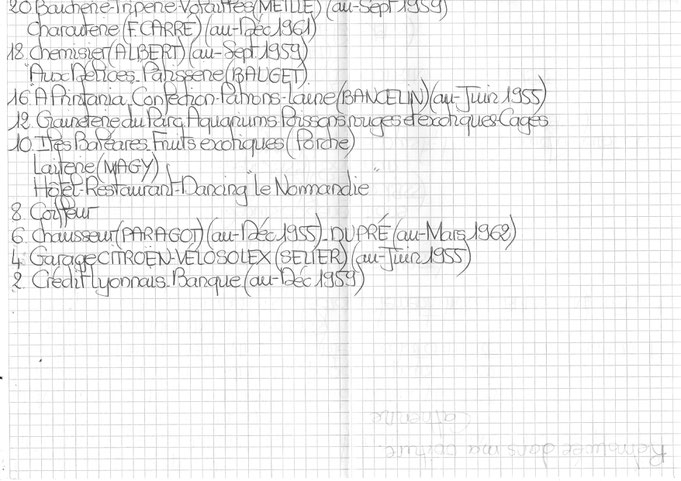 20. Boucherie-Triperie-Volailles (METLLE) (au-Sept 1959)
Charcuterie (F.CARRE) (au-Déc 1961)
18. Chemisier (ALBERT) (au-Sept 1959)
"Aux Délices. Pâtisserie (BAUGET)
16. A Printania. Confection-Patrons-Laine (BANCELIN) (au-Juin 1955)
12. Graineterie du Parc. Aquariums. Poissons rouges et exotiques-Cages
10. Iles Baléares. Fruits exotiques (Porche)
Laiterie (MAGY)
Hôtel-Restaurant-Dancing "le Normandie"
8. Coiffeur
6. Chausseur (PARAGOT) (au-Déc 1955)-DUPRÉ (au-Mars 1962)
4. Garage CITROËN-VELOSOLEX (SELIER) (au-Juin 1955)
2. Crédit Lyonnais. Banque (au-Déc 1959)
Catherine
dans ma